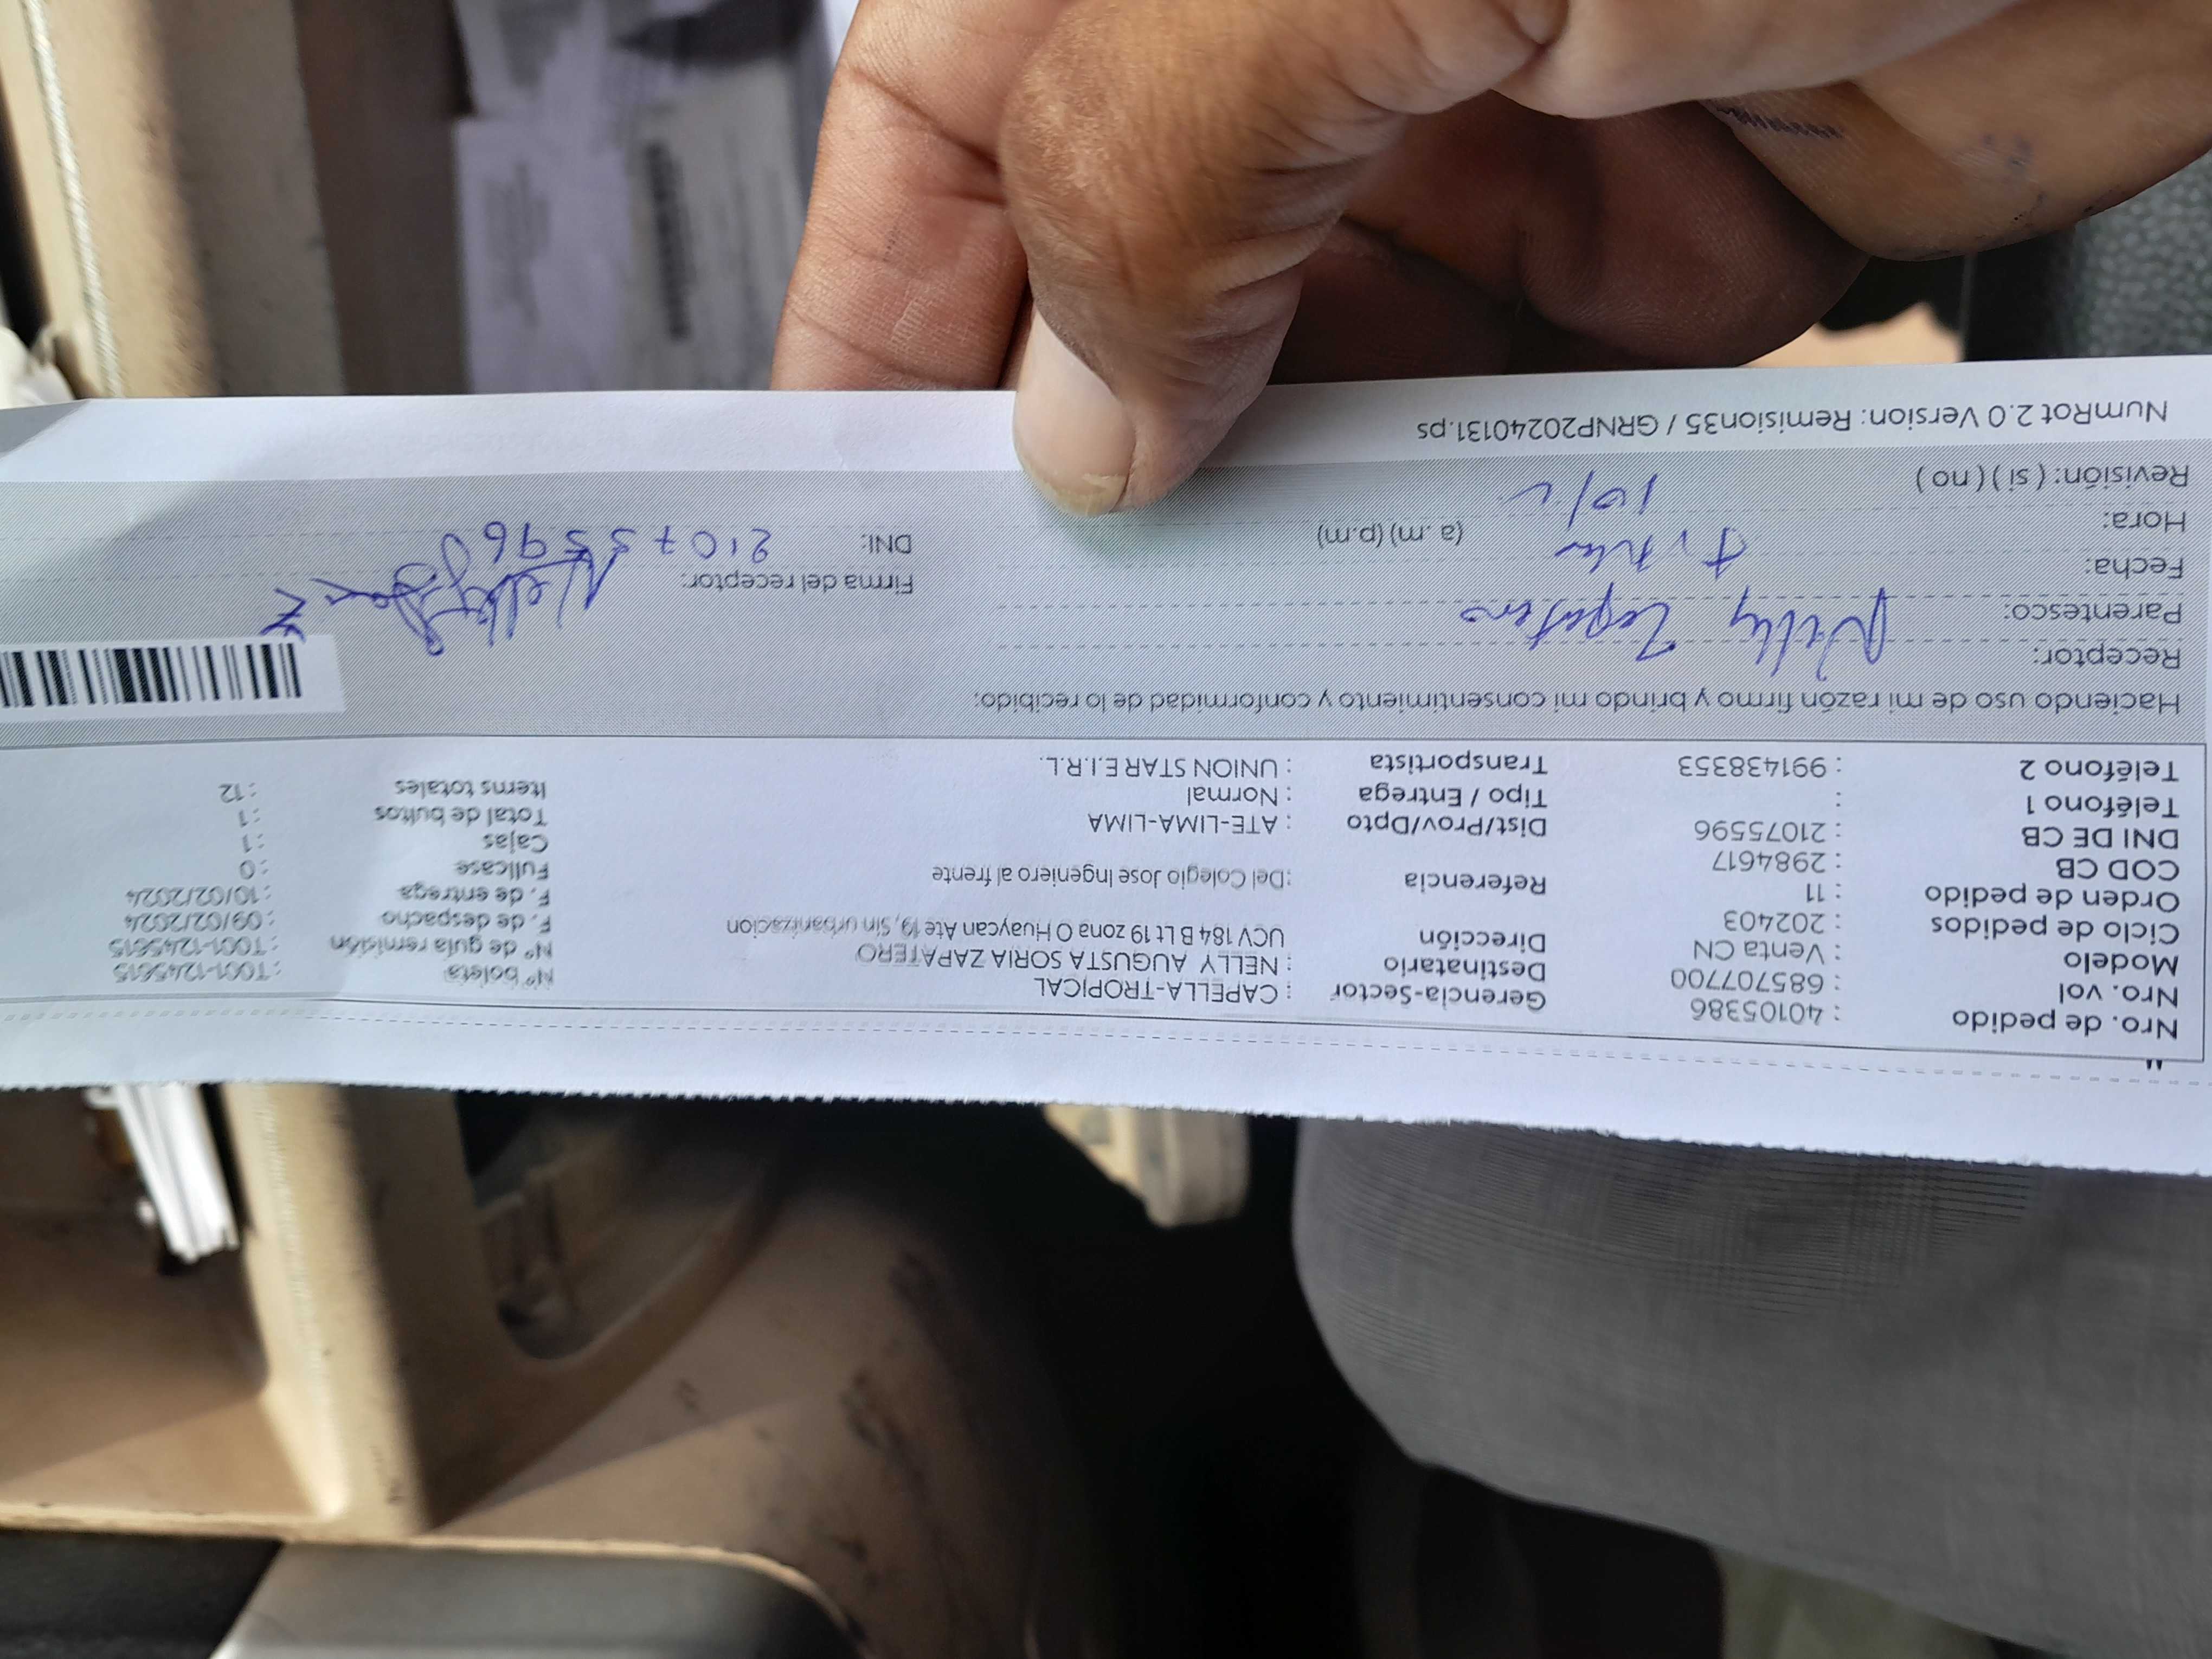 Nro. de pedido : 40105386 Gerencia-Sector : CAPELLA-TROPICAL Nº boleta : T001-1245615
Nro. vol : 685707700 Destinatario : NELLY AUGUSTA SORIA ZAPATERO Nº de guía remisión : T001-1245615
Modelo : Venta CN Dirección UCV 184 B Lt 19 zona O Huaycan Ate 19, Sin urbanizacion F. de despacho : 09/02/2024
Ciclo de pedidos : 202403 Referencia : Del Colegio Jose Ingeniero al frente F. de entrega : 10/02/2024
Orden de pedido : 11 Dist/Prov/Dpto : ATE-LIMA-LIMA Fullcase : 0
COD CB : 2984617 Tipo / Entrega : Normal Cajas : 1
DNI DE CB : 21075596 Transportista : UNION STAR E.I.R.L. Total de bultos : 1
Teléfono 1 : Items totales : 12
Teléfono 2 : 991438353
Haciendo uso de mi razón firmo y brindo mi consentimiento y conformidad de lo recibido:
Receptor: Nelly Zapatero
Parentesco: Titular
Fecha: 10/2
Hora: (a. m) (p.m)
Revisión: ( si ) ( no )
Firma del receptor:
DNI: 21075596
NumRot 2.0 Version: Remision35 / GRNP20240131.ps